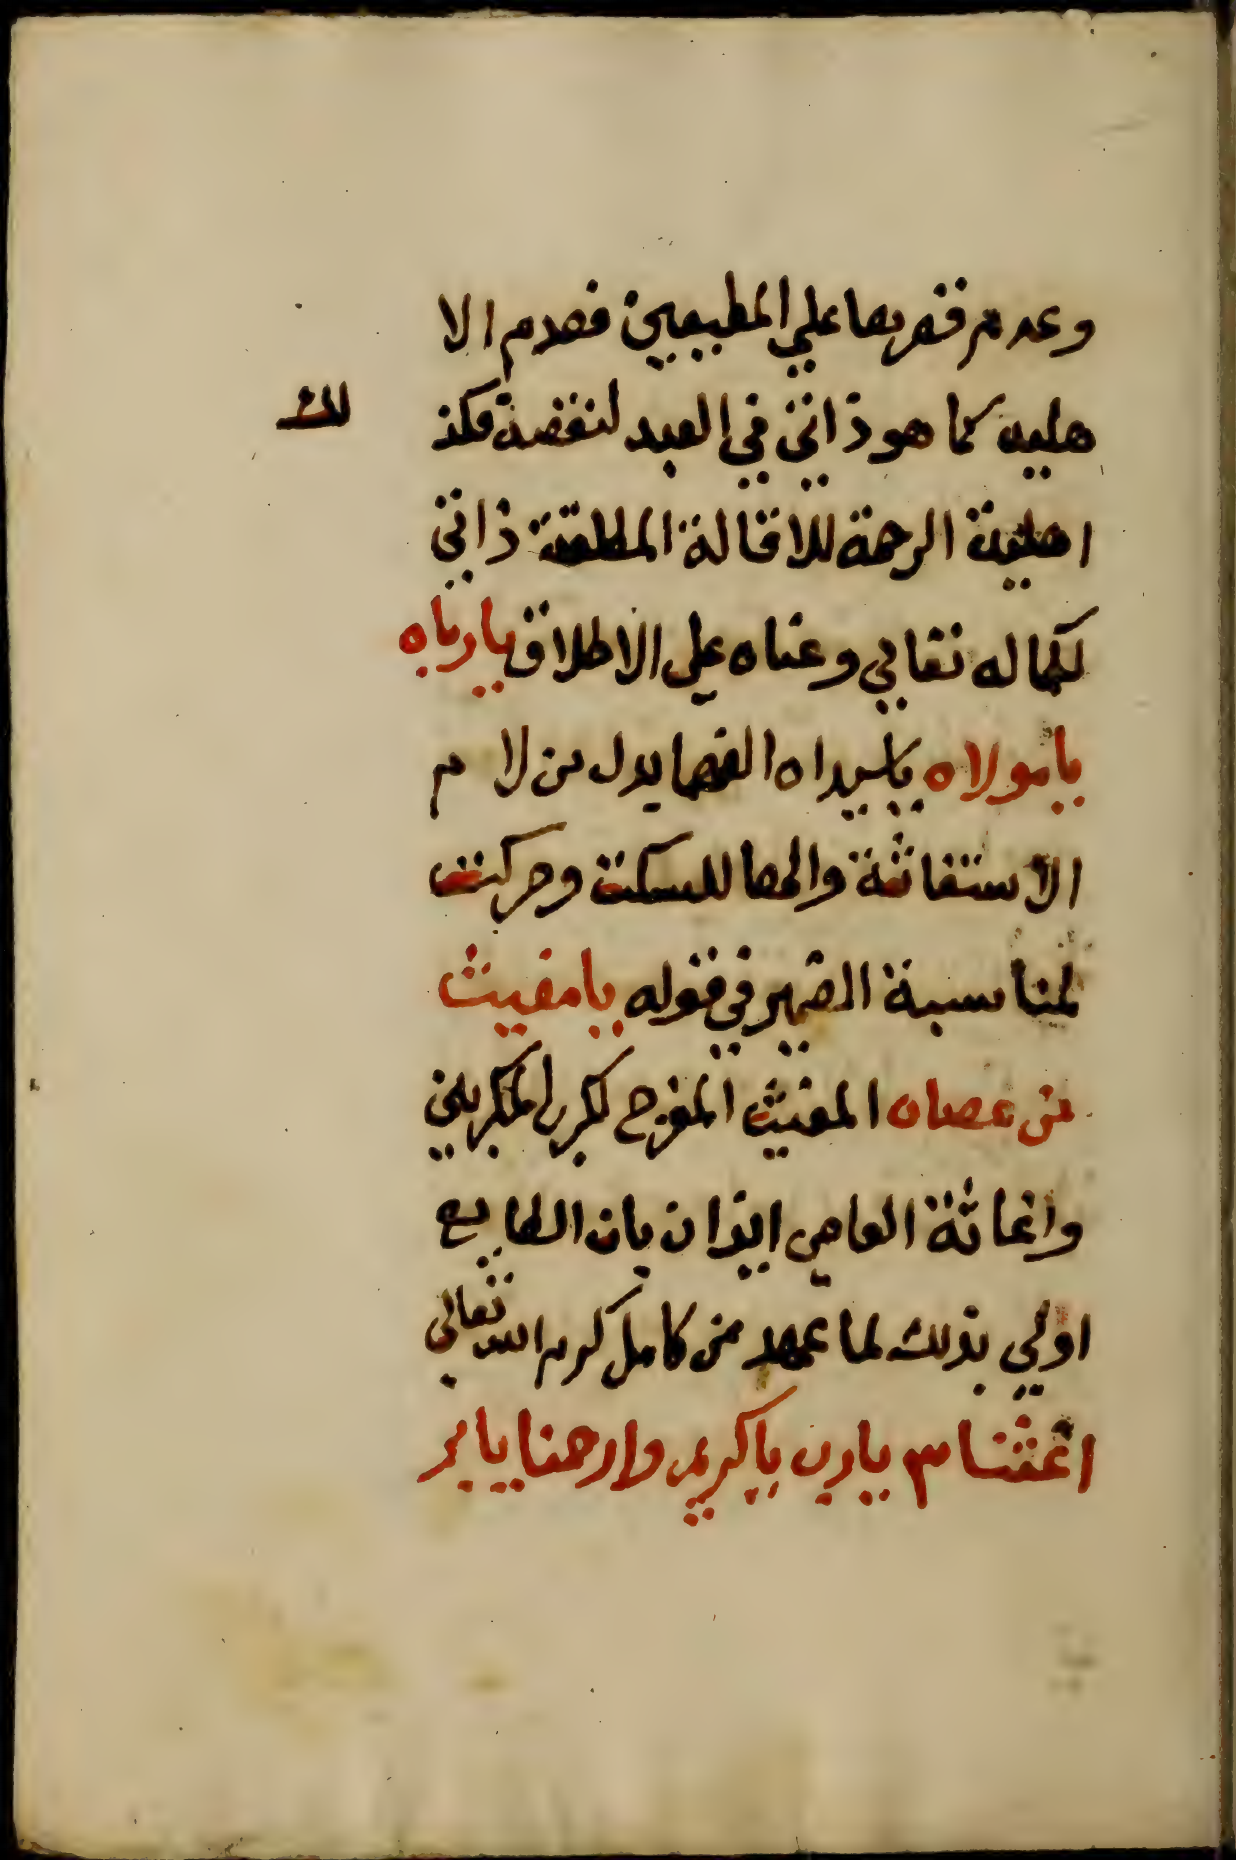 وعدم قصرها علي المطيعين فعدم الا
هليه كما هو ذاتي في العبد لنقصه فكذ
لك
اهلية الرحمة للاقالة المطلقة ذاتي
لكماله تعالي وغناه علي الاطلاق يا رباه
يا مولاه يا سيداه الفهما بدل من لا م
الاستغاثة والها للسكت وحركت
لمناسبة الضمير في قوله يا مغيث
من عصاه المغيث المفرح لكرب المكروبين
واغاثة العاصي ايذان بان الطايع
اولي بذلك لما عهد من كامل كرم الله تعالى
اغثنا يا رب يا كريم وارحمنا يا بر